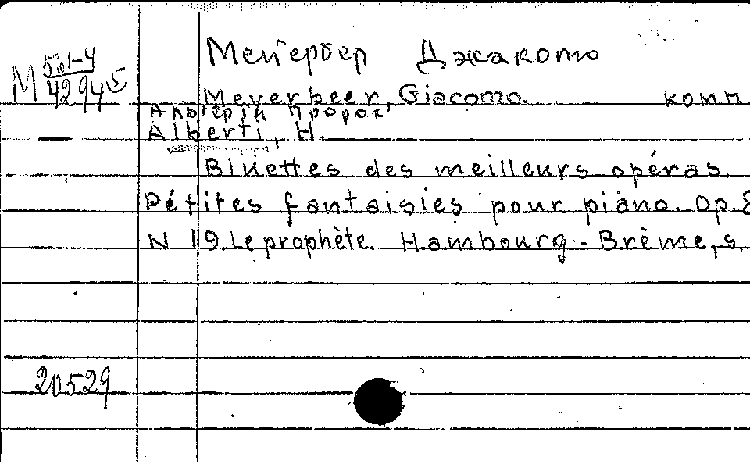 Мейербер Джакомо
М 5.01-4
42945
Meyerbeer, Giacomo. комп
Альберти Пророк,
Alberti, H.
Bluettes des meilleurs opéras
Pétites fantaisies pour piano. Op.8
N 19. Le prophète. Hambourg - Brême, s.
20529